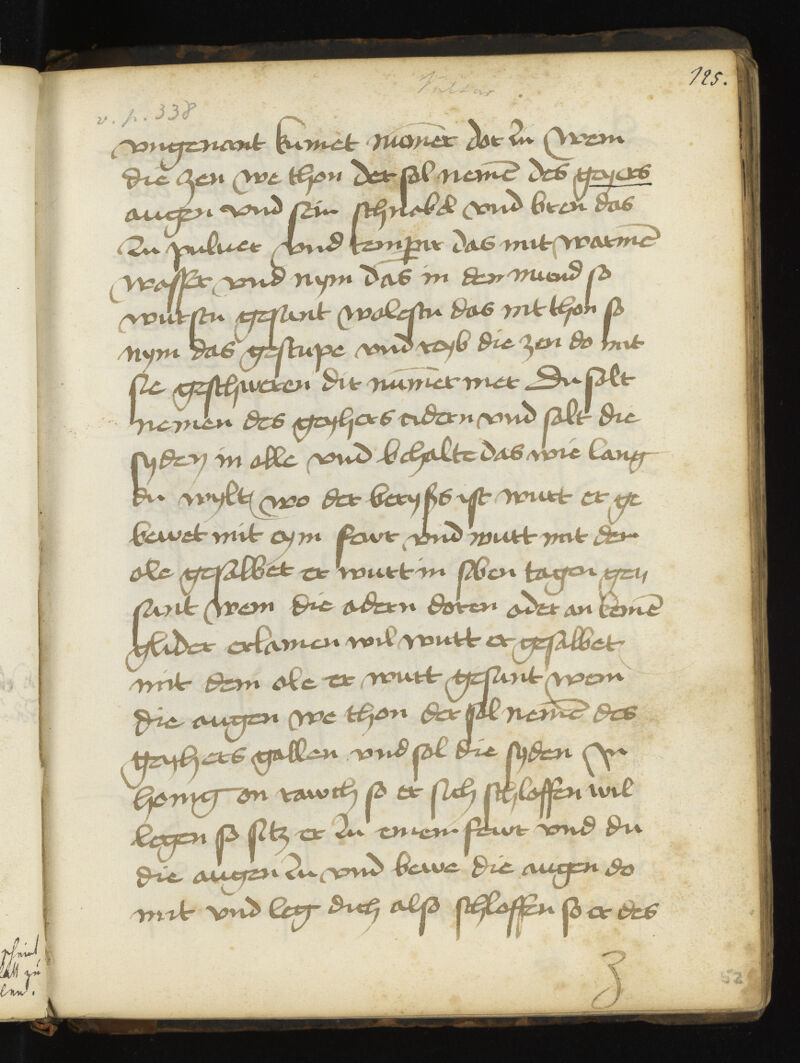 Vultur
125.
v. p. 338
vngenant kumet nӯmer dor zu Wem
die zen we thon der sol nemē des geyers
augen vnd sein schnabel vnd bren das
zu puluer vnd temperir das mit warmē
wasser vnd nym das in den mund so
wurstu gesunt wolestu das nit thon so
nym das gestupe vnd reyb die zen do mit
sie geschweren dir num̄er mer Du solt
nemen des geyhers adern vnd solt die
syden in olle vnd behalte das wie lang
du wylt wo der
ist wurt er ge
bewet mit eym fewr vnd wurt mit dem
ole gesalbet er wurt in siben tagen ge//
sunt wem die adern doren oder an
glider erlamen wil wurt er gesalbet
mit dem ole er wurt gesunt wem
die augen we thon der sol nemē des
geyhers gallen vnd sol die syden in
honig on rawch so er sich schloffen wil
legen so sitz er zu einem fewr vnd du
die augen zu vnd bewe die augen do
mit vnd leg dich also schloffen so er des
3
52
scheint
blatt zu